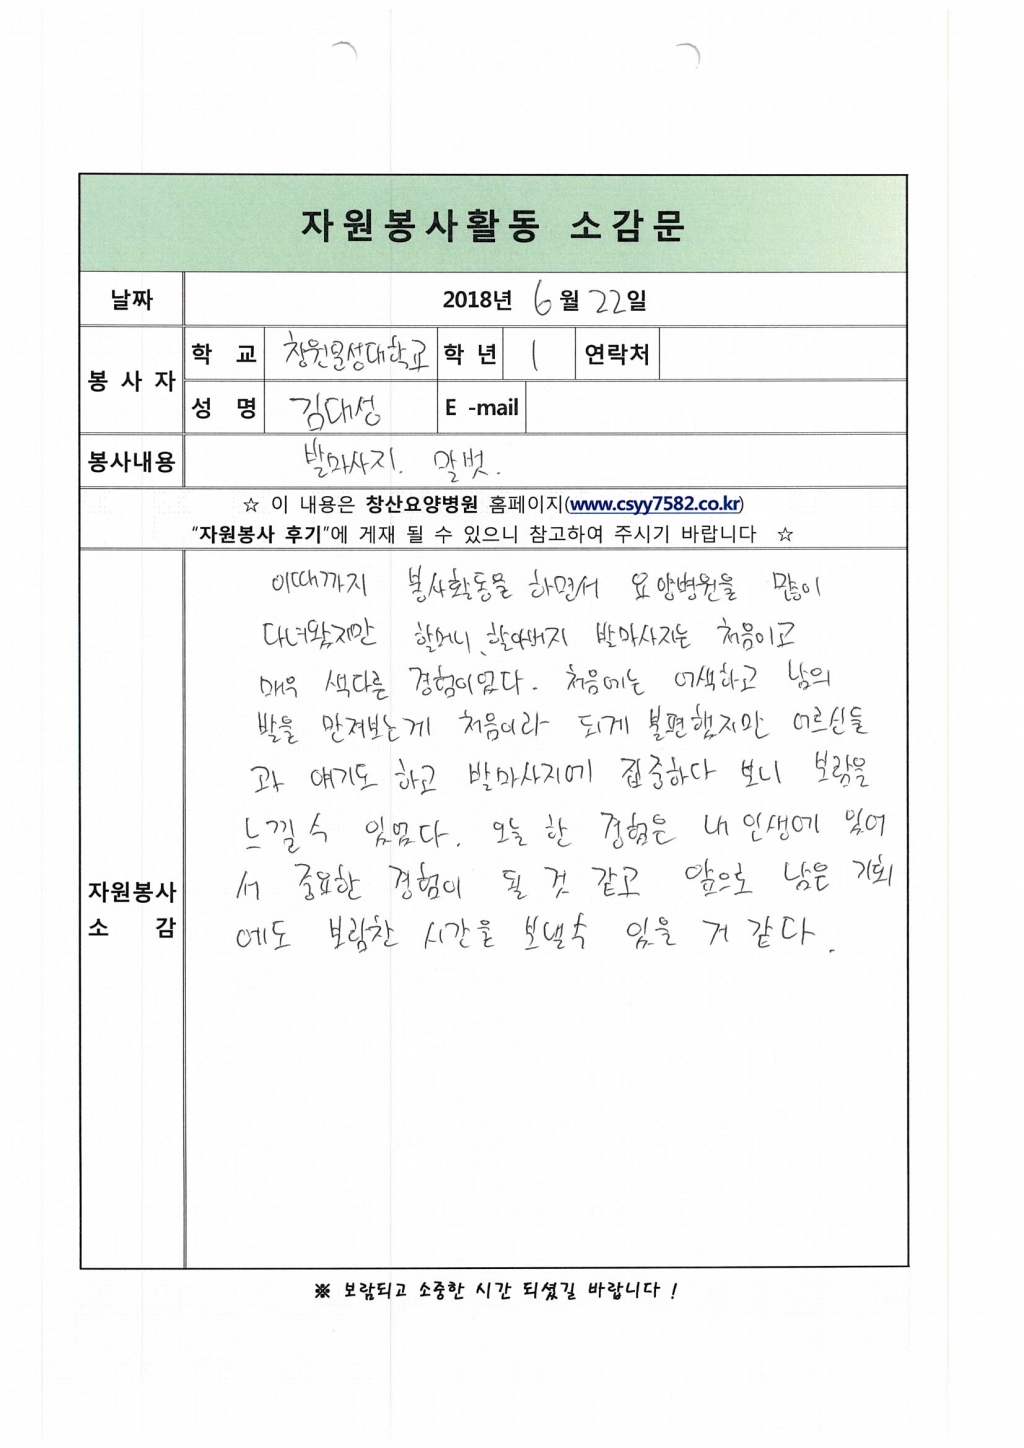 자원봉사활동 소감문
날짜 2018년 6월 22일
봉사자 학교 창원문성대학교 학년 1 연락처
성명 김대성 E -mail
봉사내용 발마사지. 말벗.
☆ 이 내용은 창산요양병원 홈페이지(www.csyy7582.co.kr)
"자원봉사 후기"에 게재 될 수 있으니 참고하여 주시기 바랍니다 ☆
자원봉사 소감
이때까지 봉사활동을 하면서 요양병원을 많이
다녀왔지만 할머니, 할아버지 발마사지는 처음이고
매우 색다른 경험이었다. 처음에는 어색하고 남의
발을 만져보는게 처음이라 되게 불편했지만 어르신들
과 얘기도 하고 발마사지에 집중하다 보니 보람을
느낄수 있었다. 오늘 한 경험은 내 인생에 있어
서 중요한 경험이 될 것 같고 앞으로 남은 기회
에도 보람찬 시간을 보낼수 있을 거 같다.
※ 보람되고 소중한 시간 되셨길 바랍니다 !